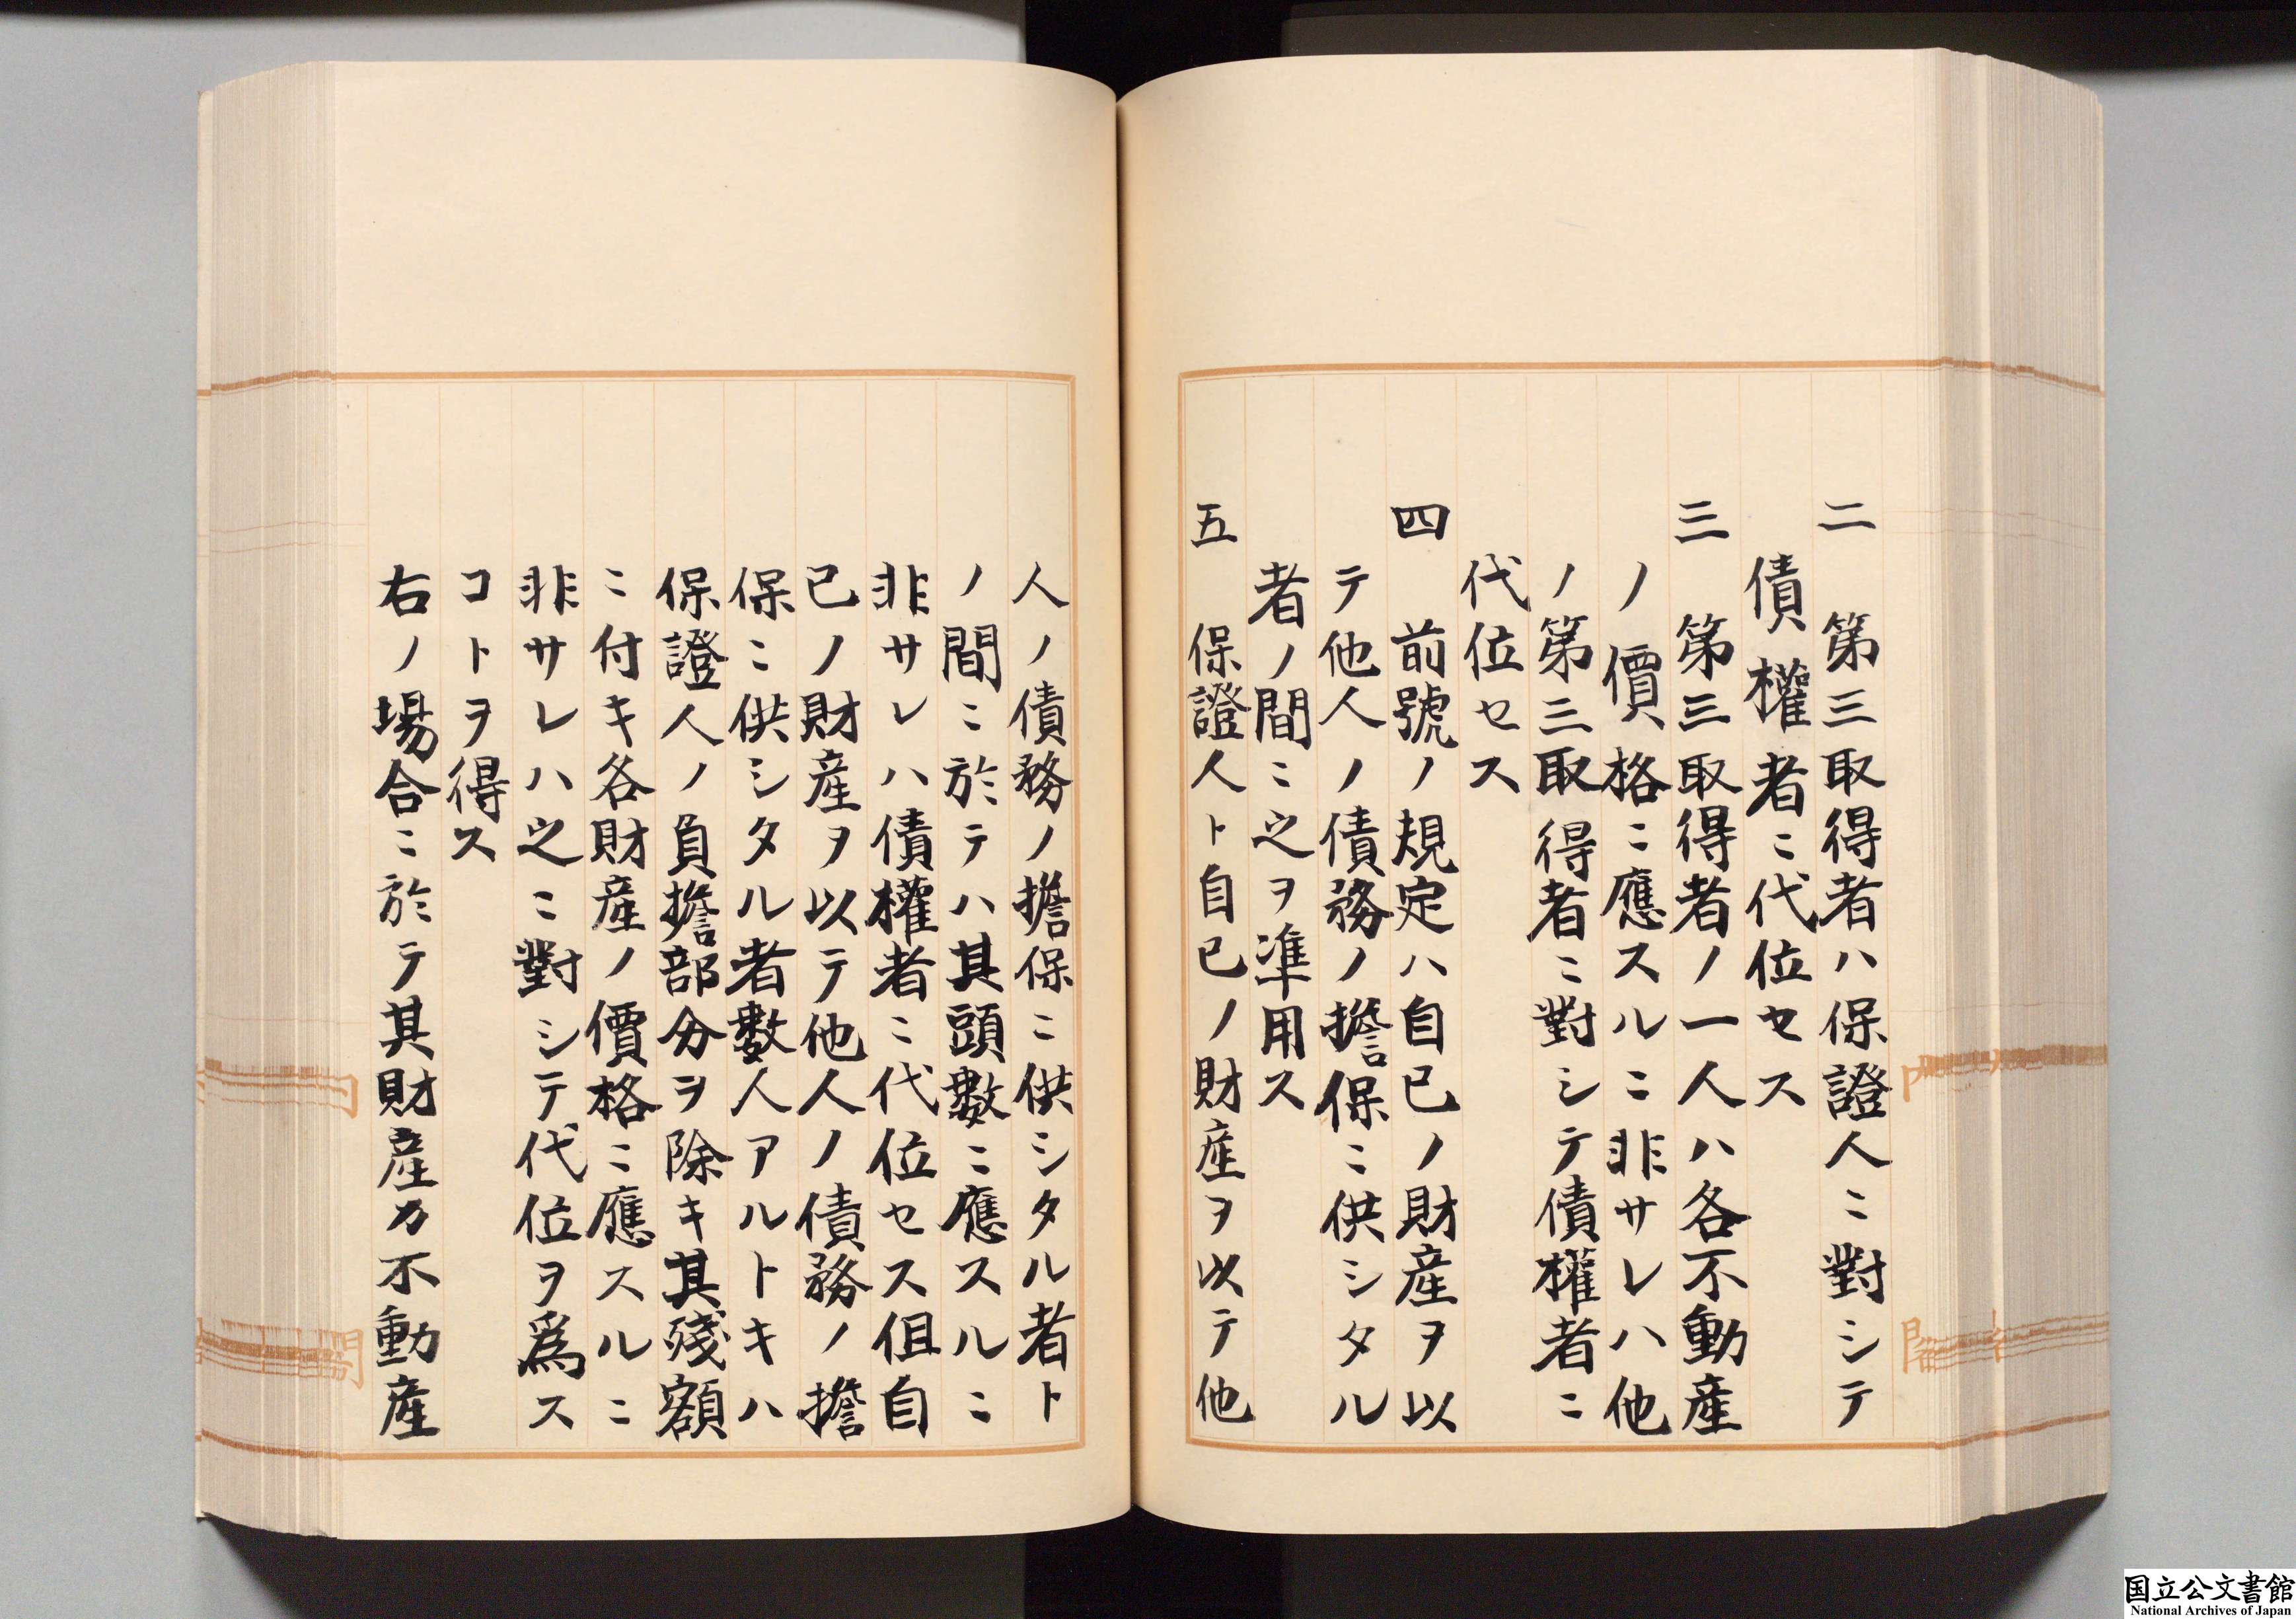 二　第三取得者ハ保證人ニ對シテ
債權者ニ代位セス
三　第三取得者ノ一人ハ各不動產
ノ價格ニ應スルニ非サレハ他
ノ第三取得者ニ對シテ債權者ニ
代位セス
四　前號ノ規定ハ自己ノ財產ヲ以
テ他人ノ債務ノ擔保ニ供シタル
者ノ間ニ之ヲ準用ス
五　保證人ト自己ノ財產ヲ以テ他
人ノ債務ノ擔保ニ供シタル者ト
ノ間ニ於テハ其頭數ニ應スルニ
非サレハ債權者ニ代位セス伹自
己ノ財產ヲ以テ他人ノ債務ノ擔
保ニ供シタル者數人アルトキハ
保證人ノ負擔部分ヲ除キ其殘額
ニ付キ各財產ノ價格ニ應スルニ
非サレハ之ニ對シテ代位ヲ爲ス
コトヲ得ス
右ノ場合ニ於テ其財產カ不動產
国立公文書館
National Archives of Japan